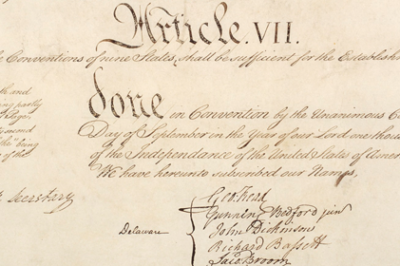 Article. VII.
Conventions of nine States, shall be sufficient for the Establish
th and
ing partly
second
the" being
of the
done in Convention by the Unanimous Co
Day of September in the Year of our Lord one thous
of the Independance of the United States of Amer
We have hereunto subscribed our Names,
Secretary
Delaware
Geo: Read
Gunning Bedford jun
John Dickinson
Richard Bassett
Jaco: Broom